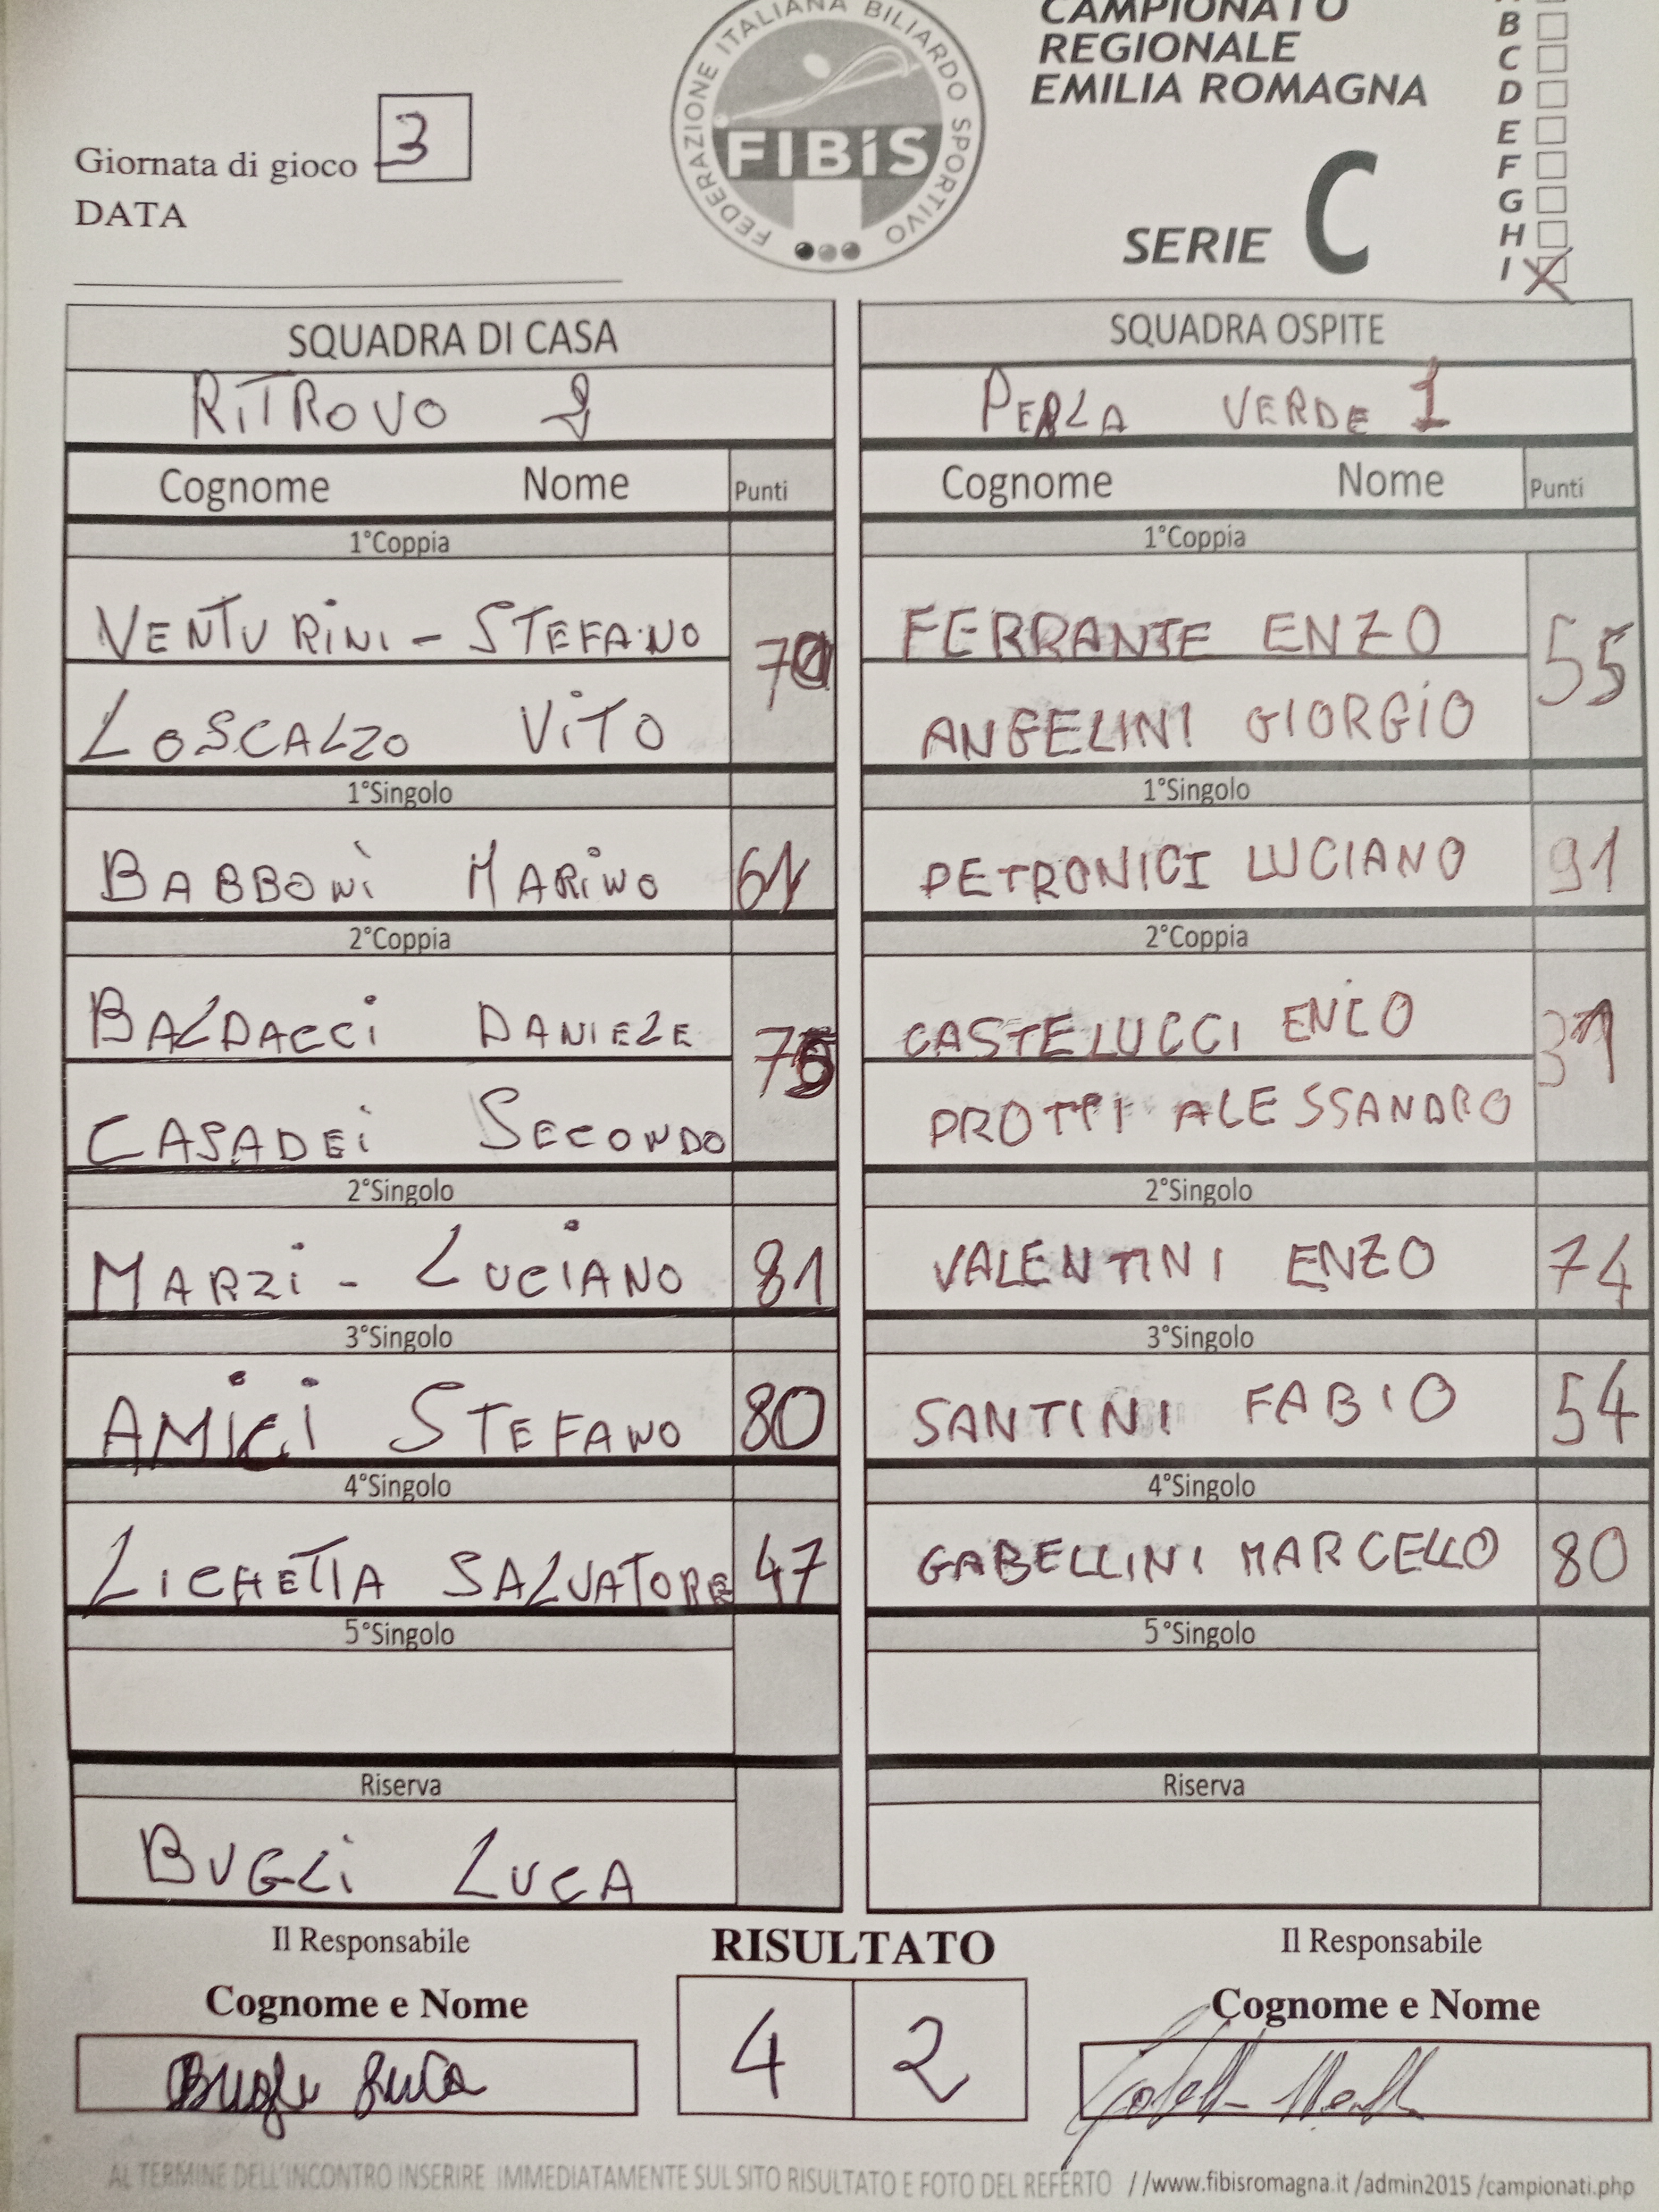 CAMPIONATO
REGIONALE
EMILIA ROMAGNA
SERIE C
B
C
D
E
F
G
H
I X
FEDERAZIONE ITALIANA BILIARDO SPORTIVO
FIBiS
Giornata di gioco 3
DATA
SQUADRA DI CASA SQUADRA OSPITE
RITROVO 2 PERLA VERDE 1
Cognome Nome Punti Cognome Nome Punti
1°Coppia 1°Coppia
VENTURINI - STEFANO 70 FERRANTE ENZO 55
LOSCALZO VITO ANGELINI GIORGIO
1°Singolo 1°Singolo
BABBONI MARINO 61 PETRONICI LUCIANO 91
2°Coppia 2°Coppia
BALDACCI DANIELE CASTELUCCI 31
CASADEI SECONDO ALESSANDRO
2°Singolo 2°Singolo
MARZI - LUCIANO 81 VALENTINI ENZO 74
3°Singolo 3°Singolo
AMICI STEFANO 80 SANTINI FABIO 54
4°Singolo 4°Singolo
LICHETTA SALVATORE 47 GABELLINI MARCELLO 80
5°Singolo 5°Singolo
Riserva Riserva
BUGLI LUCA
Il Responsabile RISULTATO Il Responsabile
Cognome e Nome 4 2 Cognome e Nome
Bugli Luca
AL TERMINE DELL'INCONTRO INSERIRE IMMEDIATAMENTE SUL SITO RISULTATO E FOTO DEL REFERTO //www.fibisromagna.it /admin2015 /campionati.php